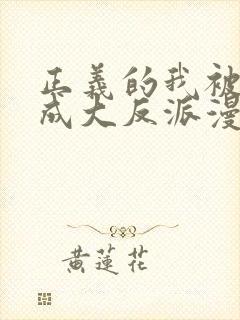 正義的我被
成大反派漫
黃蓮花